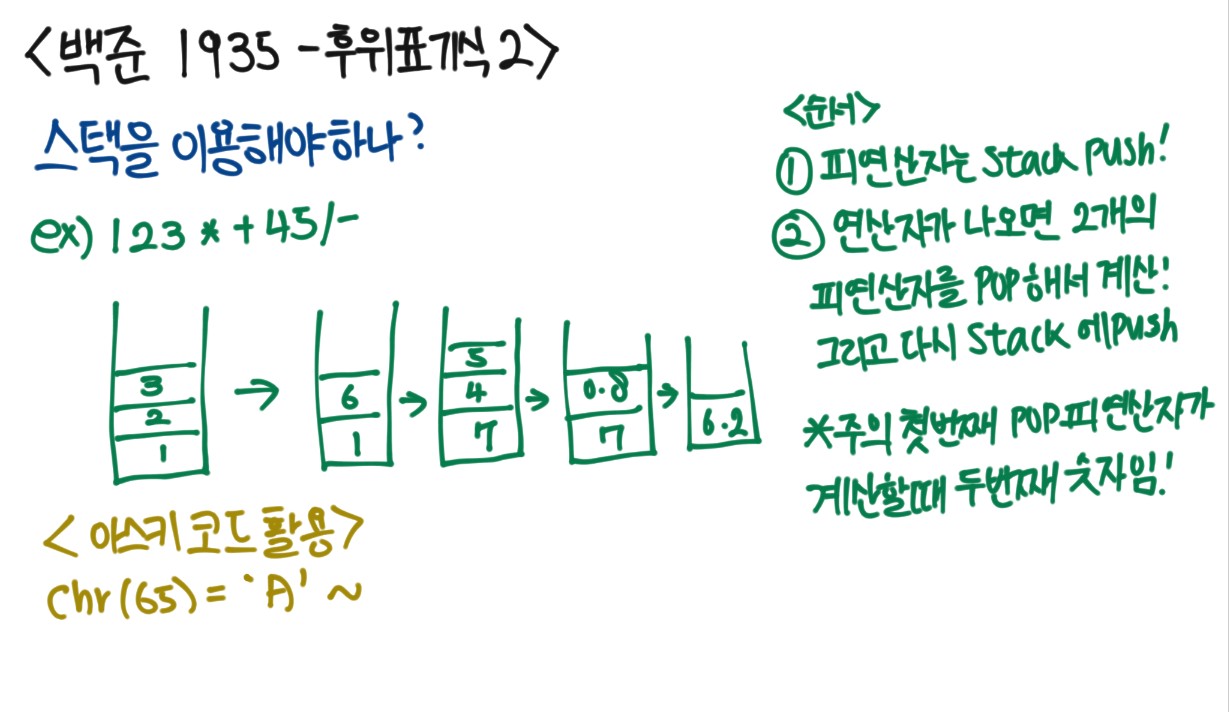 <백준 1935 - 후위표기식2>
스택을 이용해야하나?
ex) 123*+45/-
3
2
1
→
6
1
→
5
4
7
→
0.8
7
→
6.2
<아스키코드활용>
chr(65) = 'A' ~
<순서>
① 피연산자는 Stack push!
② 연산자가 나오면 2개의
피연산자를 POP해서 계산!
그리고 다시 Stack에 Push
*주의 첫번째 POP피연산자가
계산할때 두번째 숫자임!